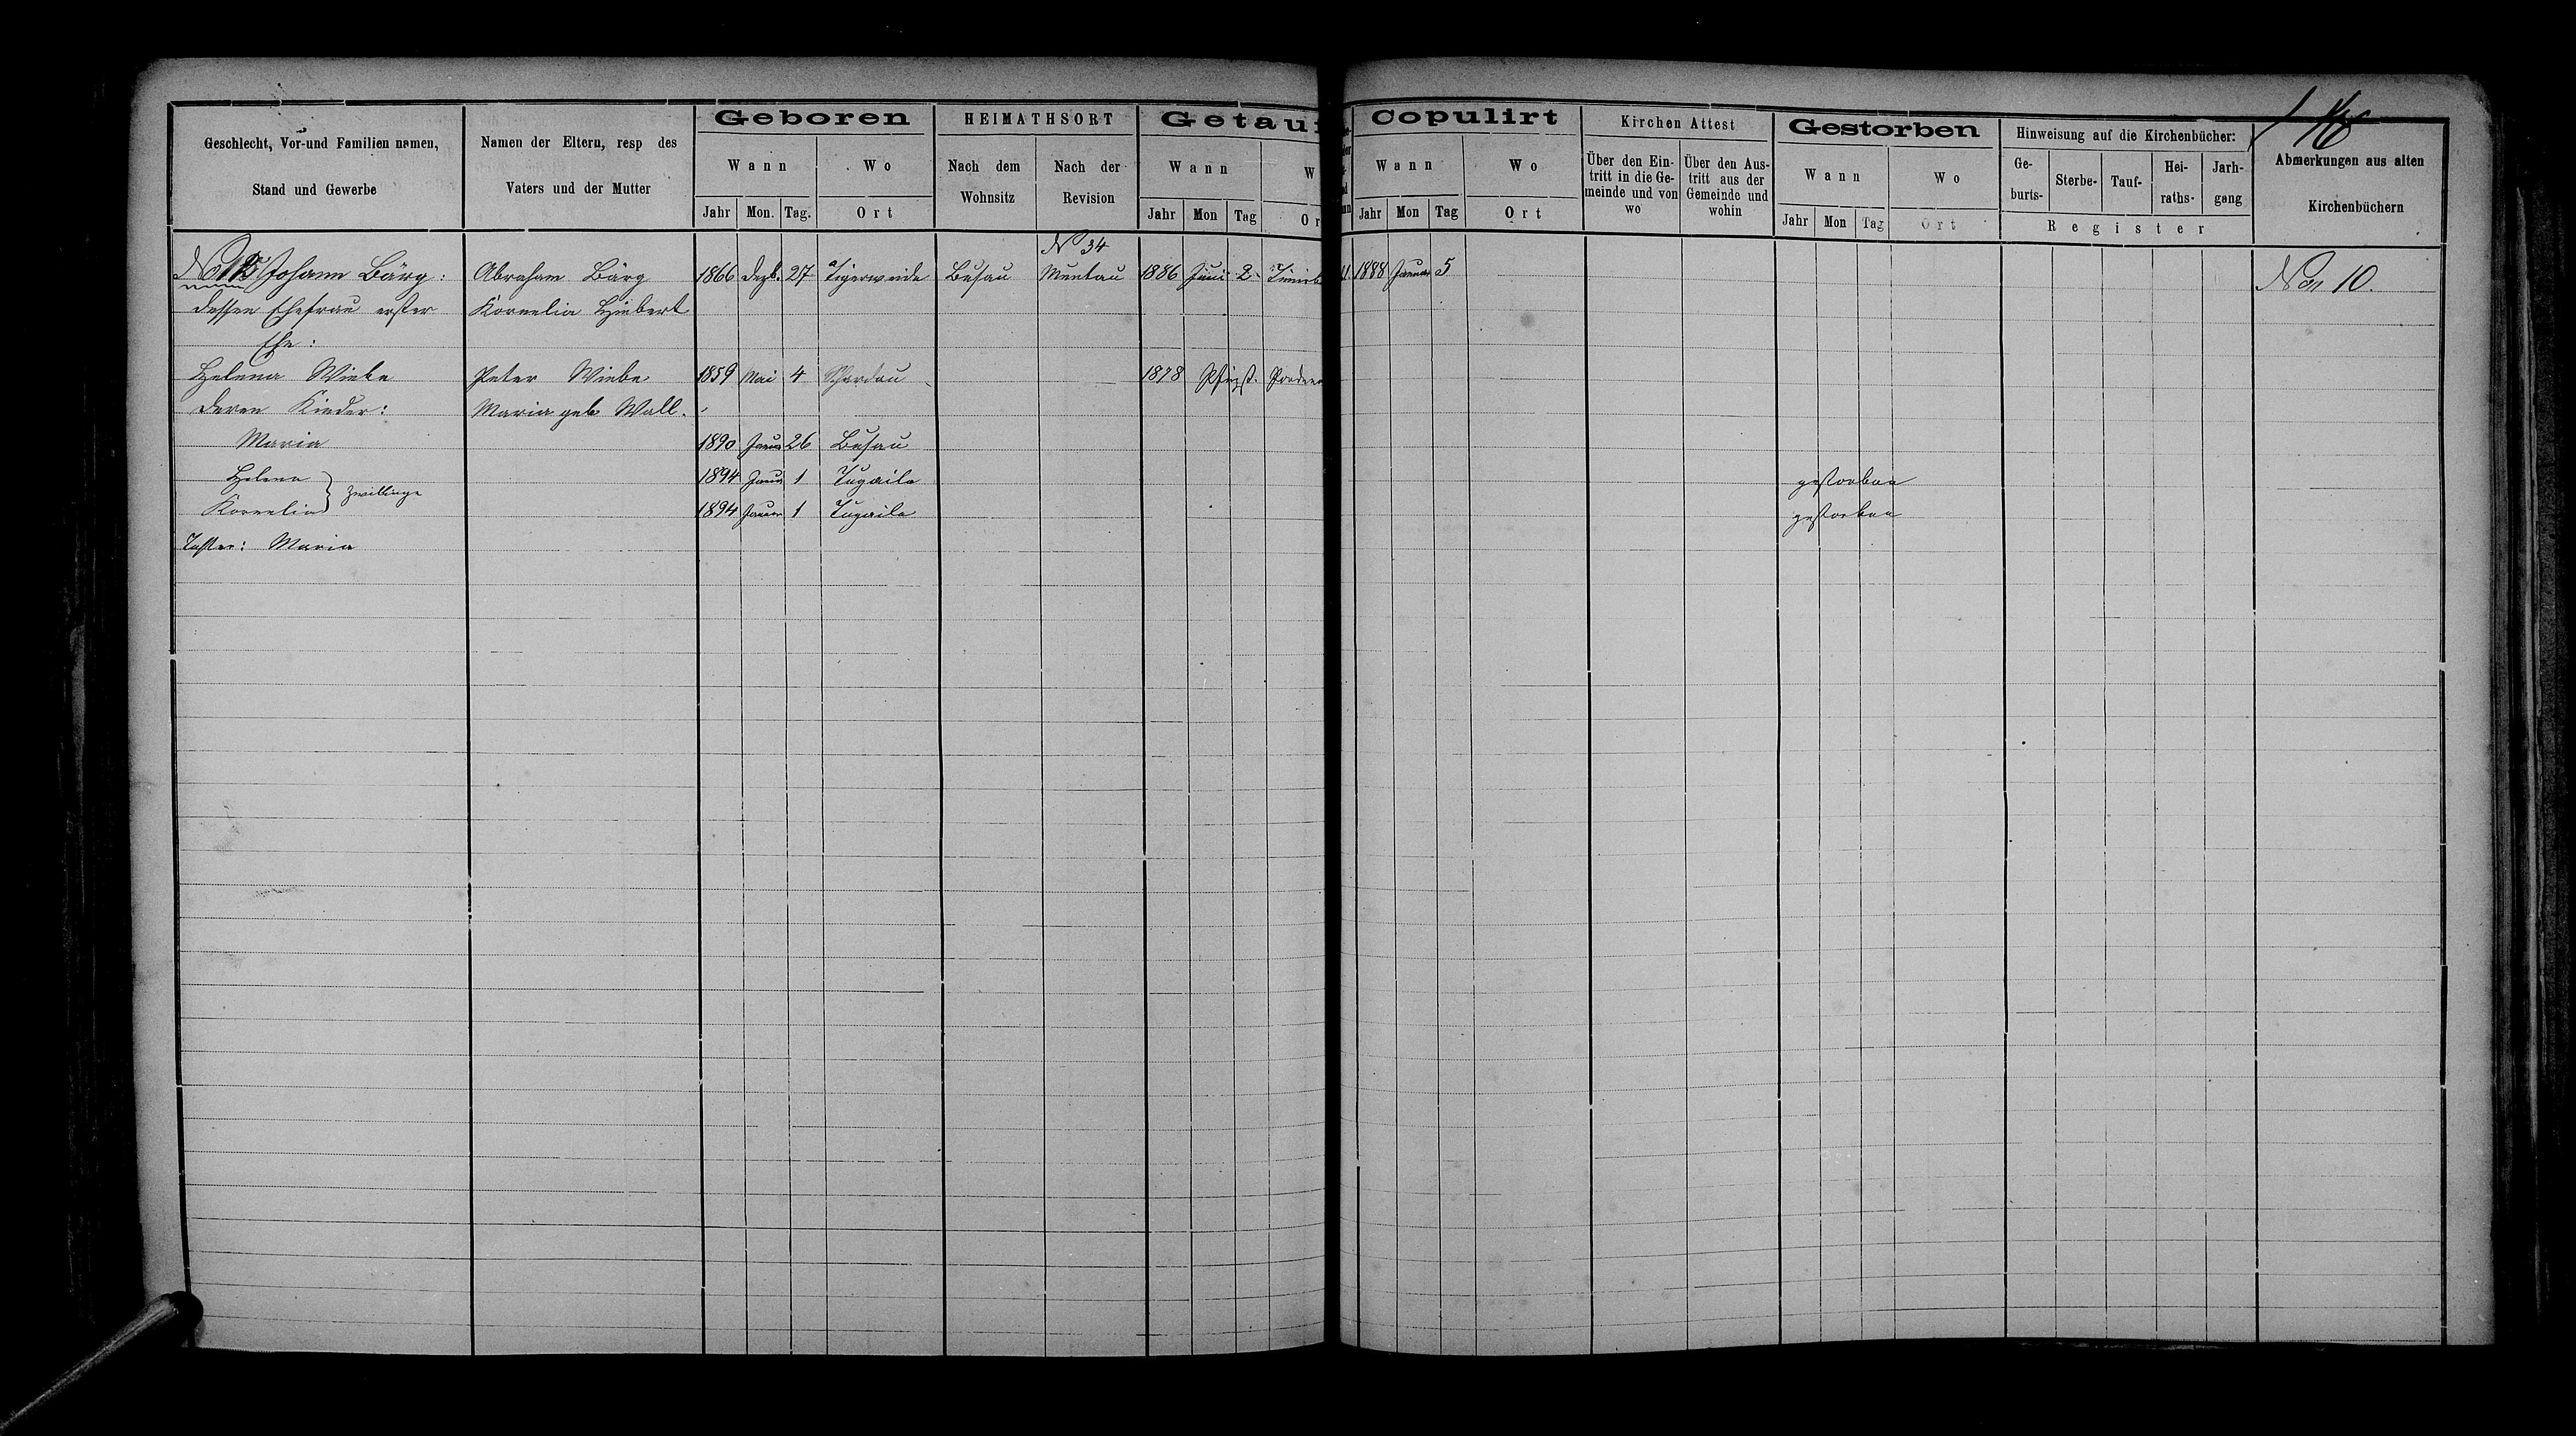 Geschlecht, Vor-und Familien namen,
Stand und Gewerbe
Namen der Eltern, resp des
Vaters und der Mutter
Geboren
Wann
Wo
Jahr Mon. Tag. Ort
HEIMATHSORT
Nach dem
Wohnsitz
Nach der
Revision
Getau
Wann
W
Jahr Mon Tag
Copulirt
Wann
Wo
Jahr Mon Tag Ort
Kirchen Attest
Über den Ein-
tritt in die Ge-
meinde und von
wo
Über den Aus-
tritt aus der
Gemeinde und
wohin
Gestorben
Wann
Wo
Jahr Mon Tag Ort
Hinweisung auf die Kirchenbücher:
Ge-
burts-
Sterbe-
Tauf-
Hei-
raths-
Jarh-
gang
Register
Abmerkungen aus alten
Kirchenbüchern
N 34
Johann Bärg: Abraham Bärg 1866 Dezb. 27 Tigerweide Busau Muntau 1886 Juni 2 1888 Januar 5 No 10.
dessen Ehefrau erster Kornelia Hiebert
Ehe:
Helena Wiebe Peter Wiebe 1859 Mai 4 Pardau 1878 Pfingst.
deren Kinder: Maria geb Wall.
Maria 1890 Januar 26 Busau
Helena 1894 Januar 1 Tugaile gestorben
Zwillinge
Kornelia 1894 Januar 1 Tugaile gestorben
Maria